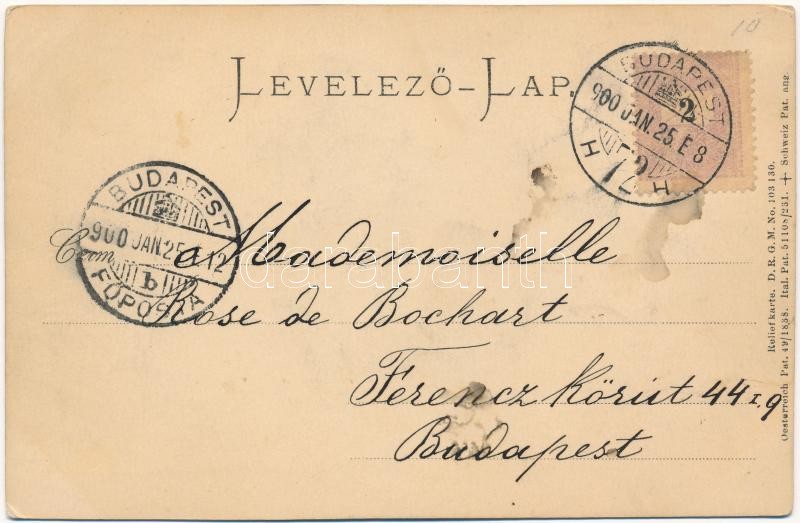 10
LEVELEZŐ-LAP.
BUDAPEST
2
900 JAN. 25. E 8
72
H H
BUDAPEST
900 JAN 25 12
b
FŐPOSTA
Mademoiselle
Rose de Bochart
Ferencz Körút 44 I. 9
Budapest
darabanth
Reliefkarte. D. R. G. M. No. 103 130.
Oesterreich Pat. 49/1838. Ital. Pat. 51108/231. + Schweiz Pat. ang.